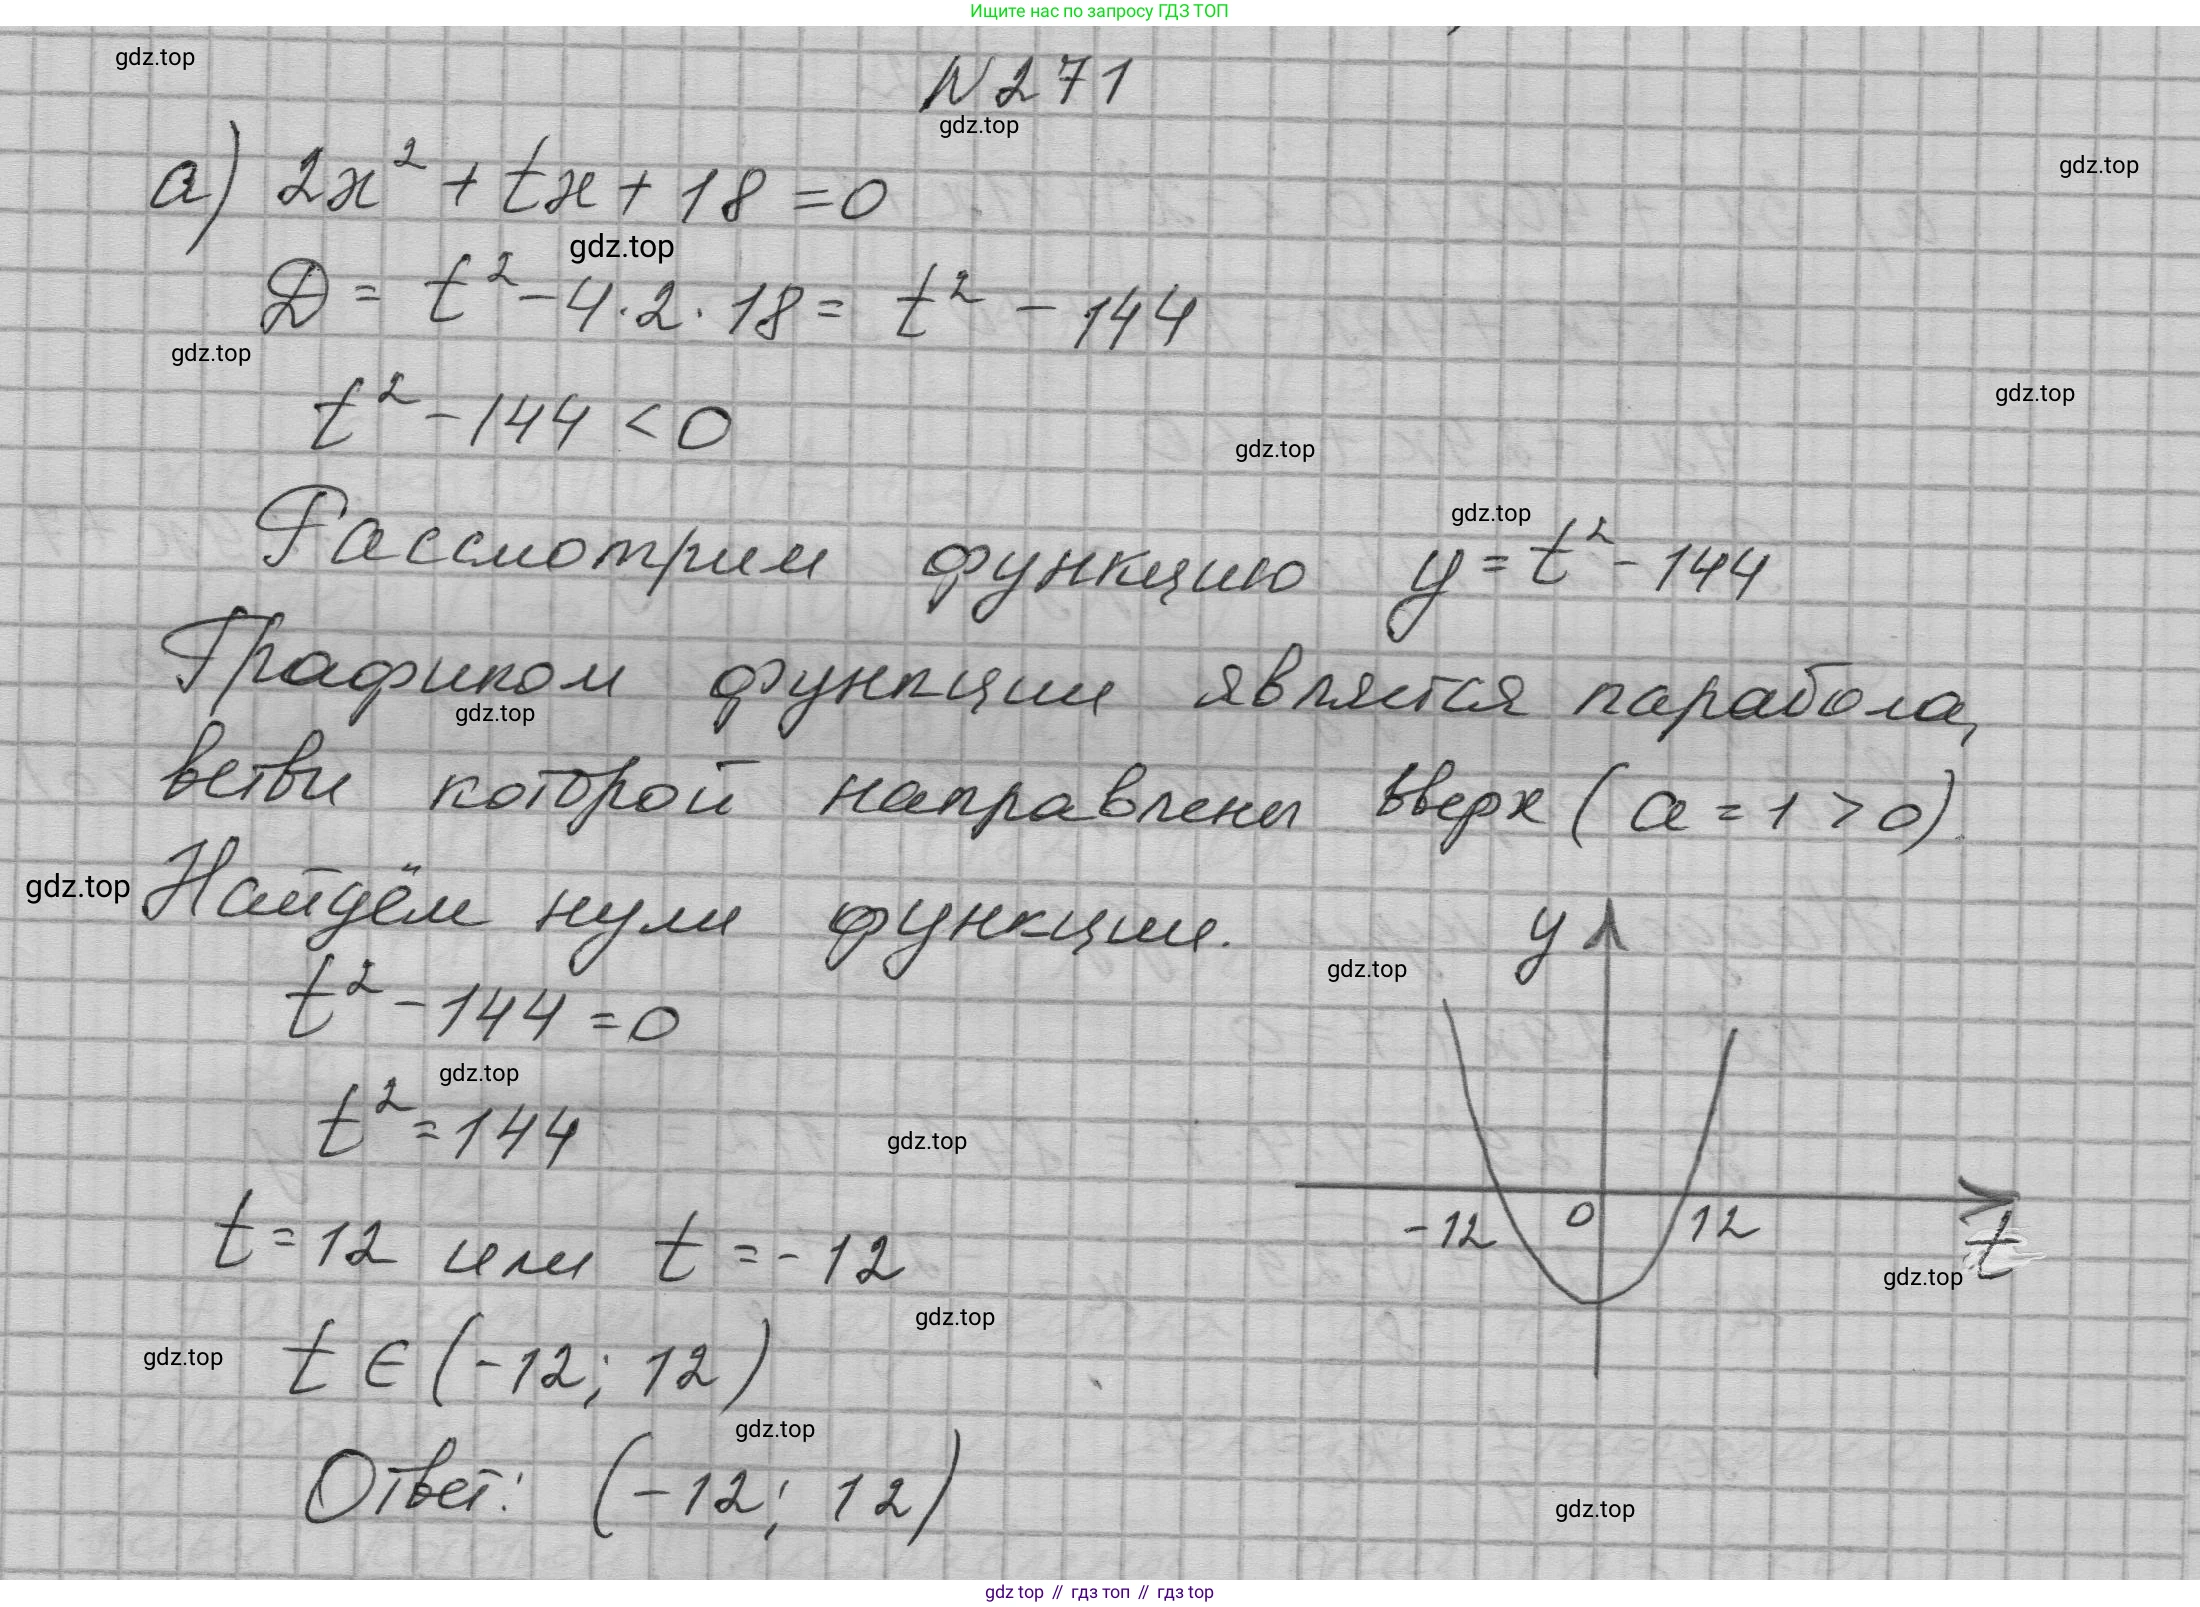 Ищите нас по запросу ГДЗ ТОП
gdz.top
N 271
gdz.top
gdz.top
а) 2x² + tx + 18 = 0
gdz.top
Д = t² - 4·2·18 = t² - 144
gdz.top
gdz.top
t² - 144 < 0
gdz.top
gdz.top
Рассмотрим функцию y = t² - 144
Графиком функции является парабола,
gdz.top
ветви которой направлены вверх (a = 1 > 0).
gdz.top
Найдём нули функции.
y
gdz.top
t² - 144 = 0
gdz.top
t² = 144
gdz.top
-12 0 12
t
gdz.top
t = 12 или t = -12
gdz.top
gdz.top
t ∈ (-12; 12)
gdz.top
Ответ: (-12; 12)
gdz.top
gdz top // гдз топ // gdz top